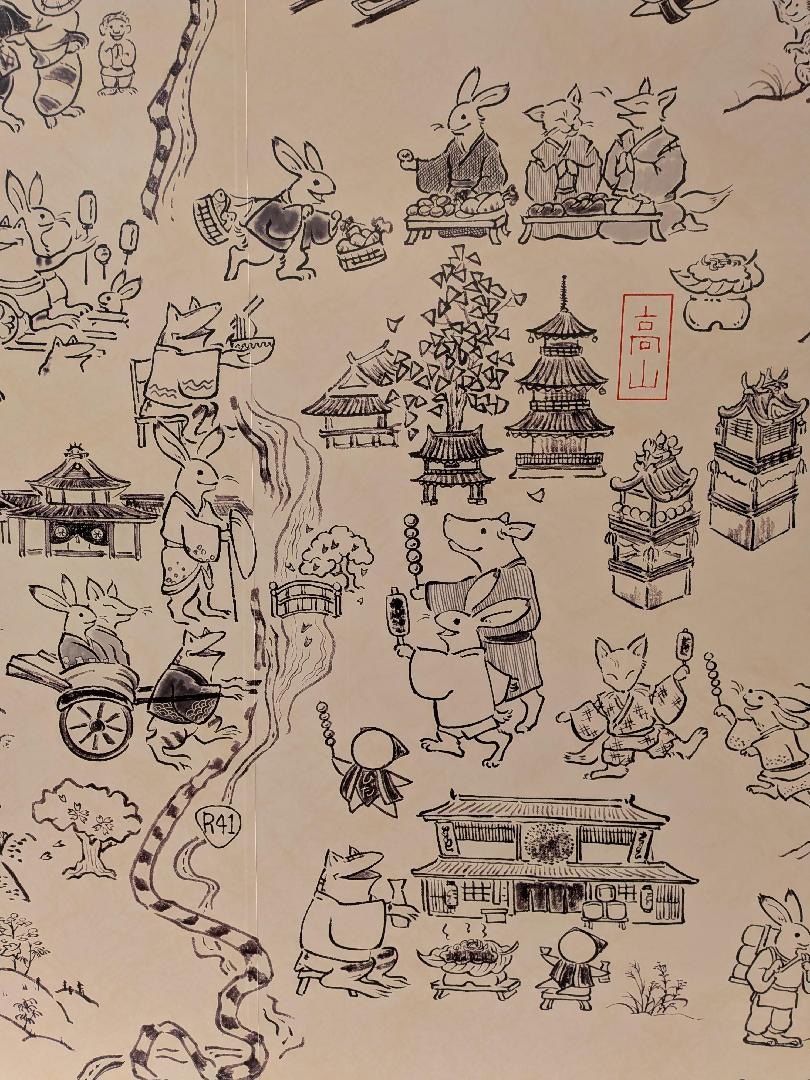 高山
R41